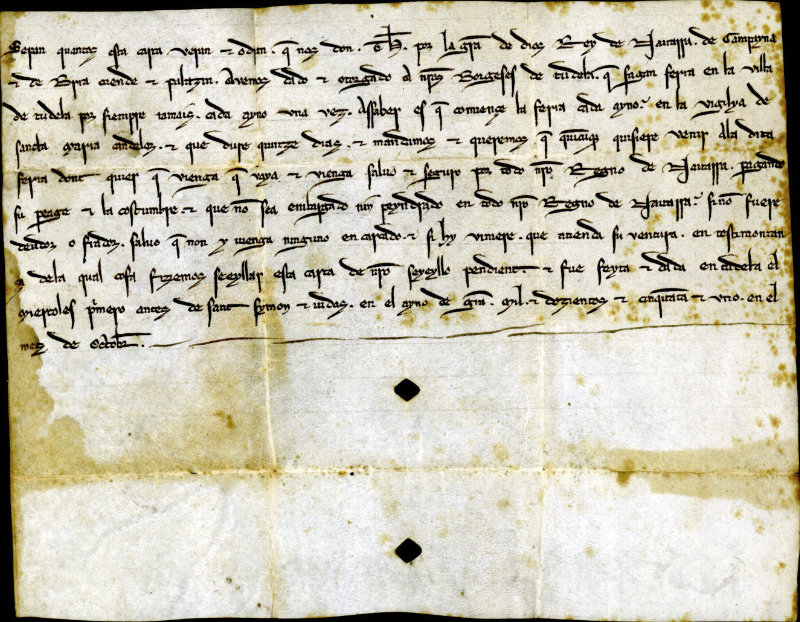 Sepan quantos esta carta veran et odran. q̃ nos don. Th̃. por la grã de dios Rey de Nauarra. de Campayna
et de Bria cuende et palazin. Avemos dado et otorgado a nr̃os Borgeses de tudela. q̃ fagan feria en la villa
de tudela por siempre iamais. cada ayno una vez. Assaber es q̃ comience la feria cada ayno. en la vigilya de
sancta maria candeler. et que dure quinze dias. et mandamos et queremos q̃ quisiere venir a la dita
feria dont quier q̃ vienga q̃ vaya et vienga saluo et seguro por todo nr̃o Regno de Nauarra. pagando
su peage et la costumbre. et que non sea embargado nin peyndrado en todo nr̃o Regno de Nauarra. si nõ fuere
deudor o fiador. saluo q̃ non y vienga ninguno encartado. et si hy viniere. que atienda su ventura. en testimonian
ça dela qual cosa fiziemos seeyllar esta carta de nr̃o seyeyllo pendient. et fue feyta et dada en tudela el
miercoles p̃mero antes de sant symon et iudas. en el ayno de grã. mil. et dozientos et cinquãta et uno. en el
mes de Octobr̃.